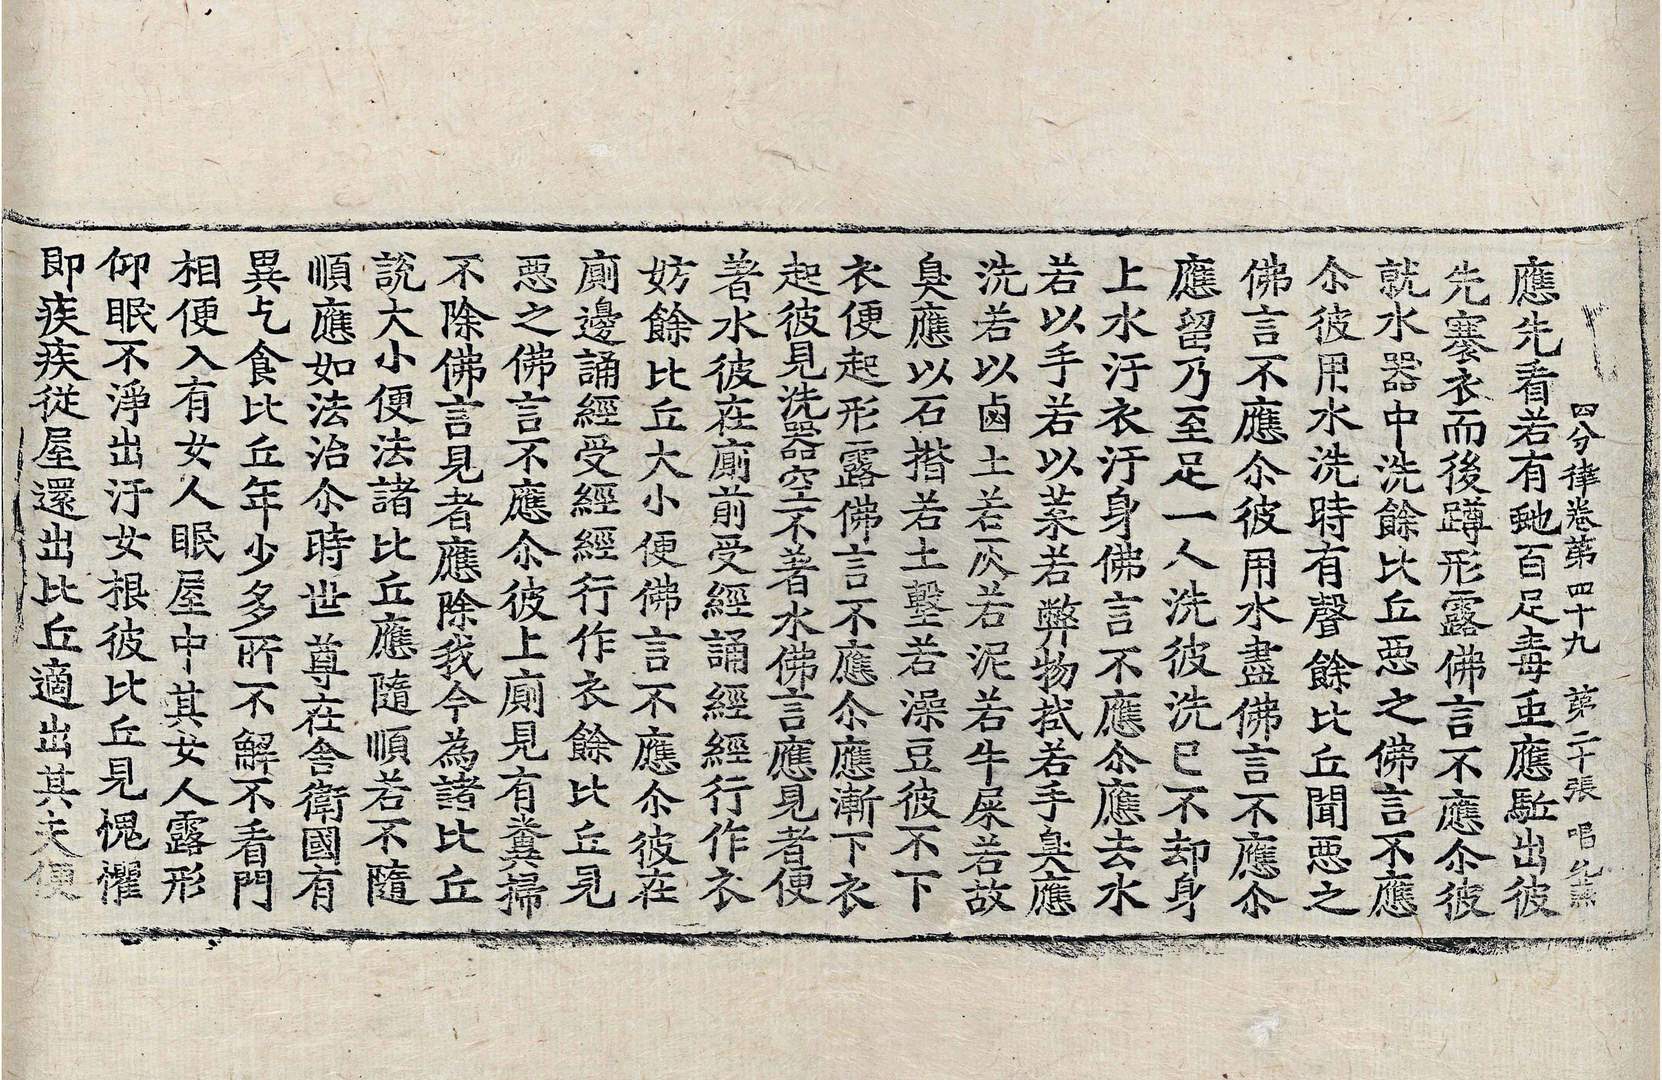 四分律卷第四十九 第二十張 唱
應先看若有虵百足毒䖝應駈出彼
先褰衣而後蹲形露佛言不應尒彼
就水器中洗餘比丘惡之佛言不應
尒彼用水洗時有聲餘比丘聞惡之
佛言不應尒彼用水盡佛言不應尒
應留乃至足一人洗彼洗已不却身
上水汙衣汙身佛言不應尒應去水
若以手若以葉若弊物拭若手臭應
洗若以鹵土若灰若泥若牛屎若故
臭應以石揩若土墼若澡豆彼不下
衣便起形露佛言不應尒應漸下衣
起彼見洗器空不著水佛言應見者便
著水彼在廁前受經誦經經行作衣
妨餘比丘大小便佛言不應尒彼在
廁邊誦經受經經行作衣餘比丘見
惡之佛言不應尒彼上廁見有糞掃
不除佛言見者應除我今為諸比丘
說大小便法諸比丘應隨順若不隨
順應如法治尒時世尊在舍衛國有
異乞食比丘年少多所不解不看門
相便入有女人眠屋中其女人露形
仰眠不淨出汙女根彼比丘見愧懼
即疾疾從屋還出比丘適出其夫便